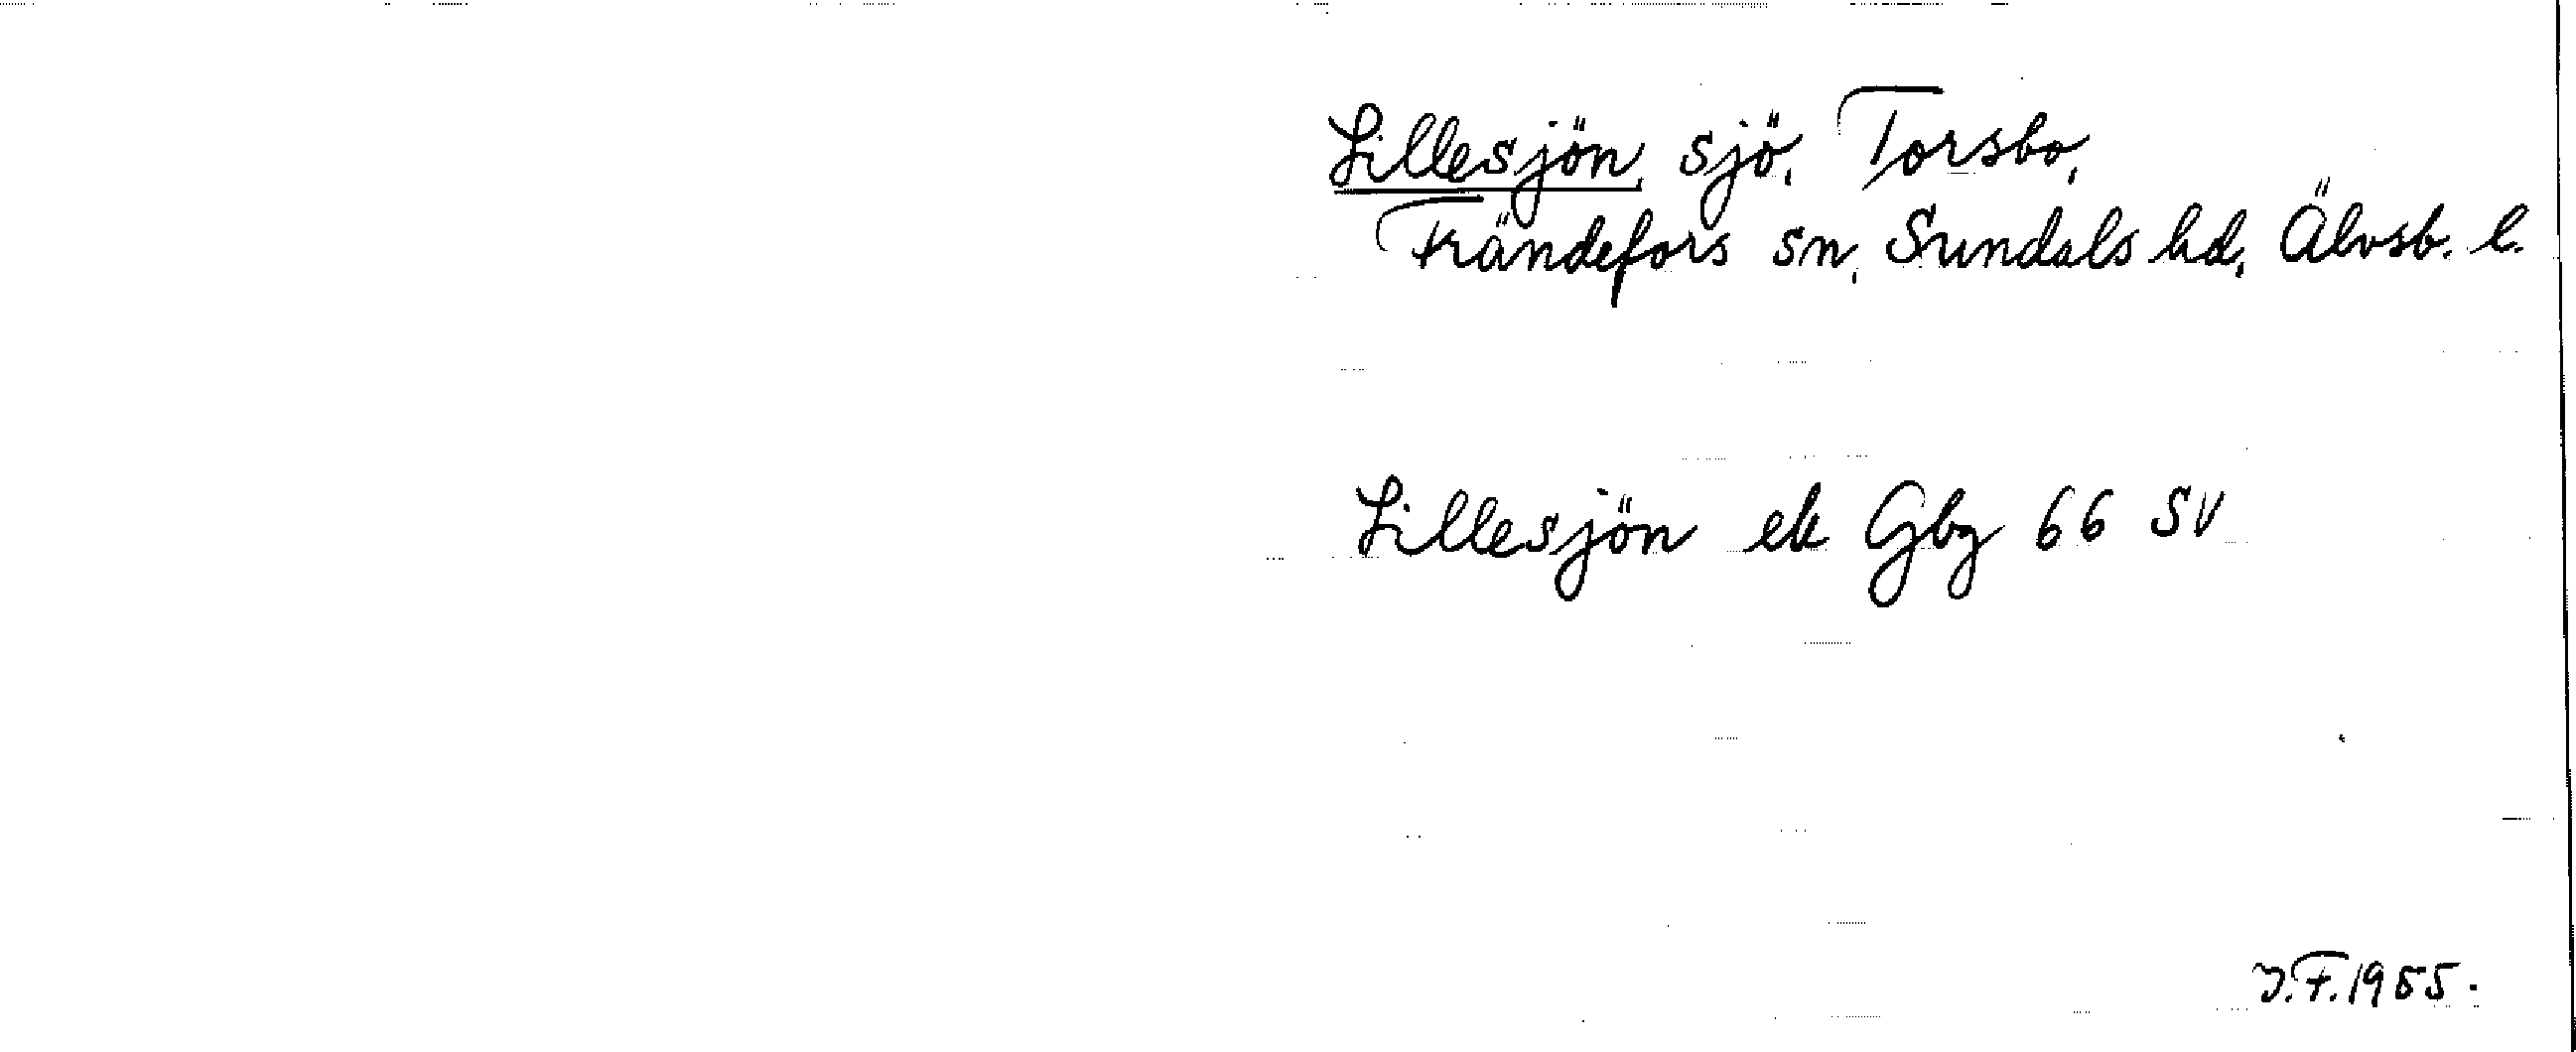 Lillesjön, sjö, Torsbo,
Frändefors sn, Sundals hd, Älvsb. l.
Lillesjön ek Gbg 66 SV
J.F. 1955.